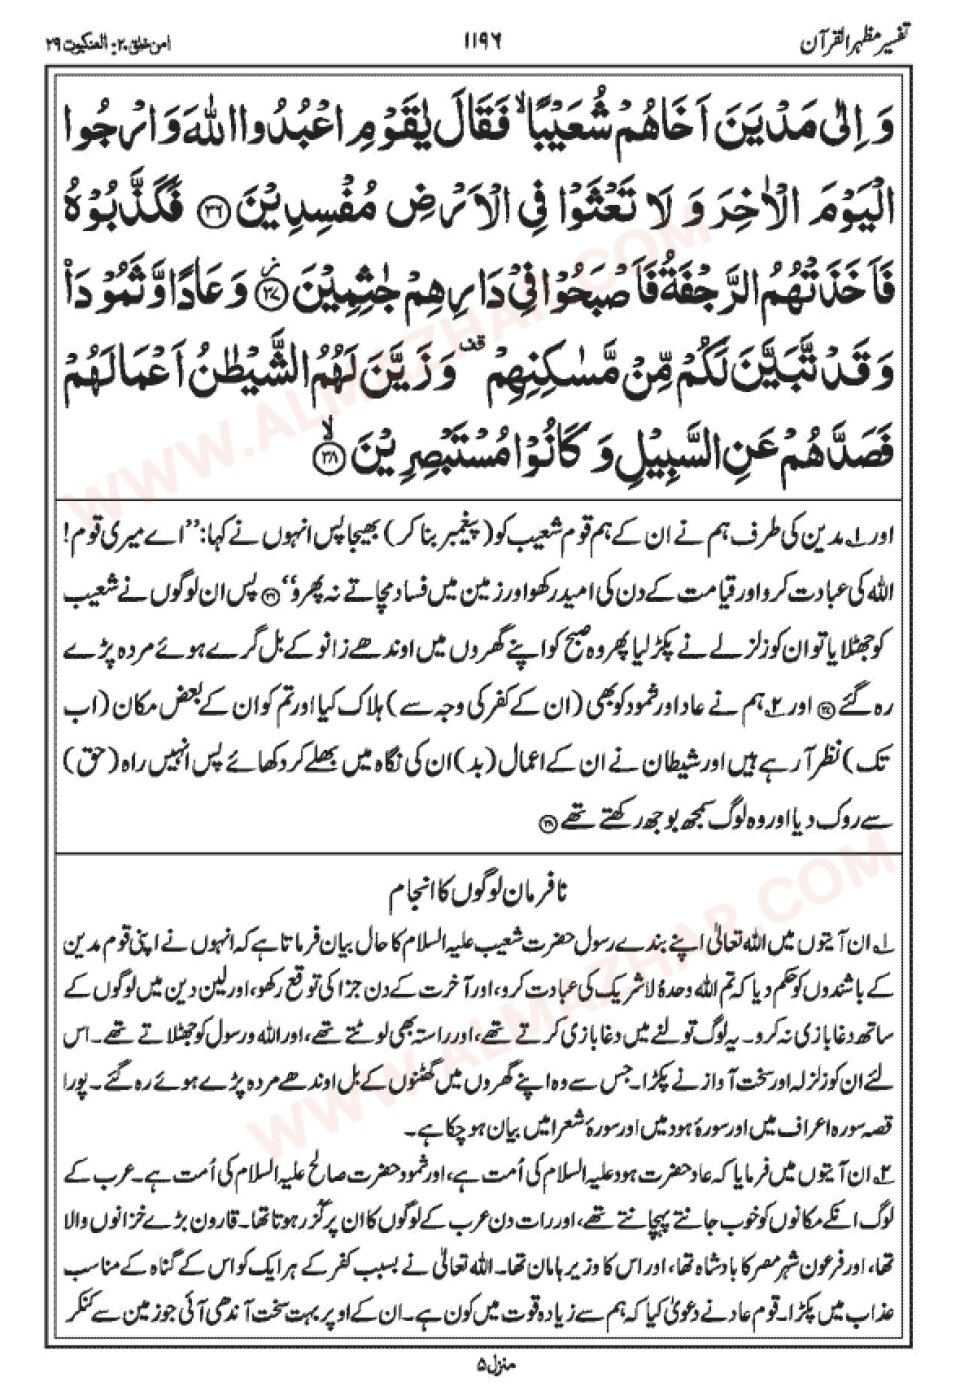 تفسیر مظہر القرآن
۱۱۹۶
امن خلق ۲۰: العنکبوت ۲۹
وَ اِلٰى مَدْيَنَ اَخَاهُمْ شُعَيْبًا ۙ فَقَالَ يٰقَوْمِ اعْبُدُوا اللّٰهَ وَ ارْجُوا
الْيَوْمَ الْاٰخِرَ وَ لَا تَعْثَوْا فِى الْاَرْضِ مُفْسِدِيْنَ ﴿۳۶﴾ فَكَذَّبُوْهُ
فَاَخَذَتْهُمُ الرَّجْفَةُ فَاَصْبَحُوْا فِىْ دَارِهِمْ جٰثِمِيْنَ ﴿۳۷﴾ وَ عَادًا وَّ ثَمُوْدَا۟
وَ قَدْ تَّبَيَّنَ لَكُمْ مِّنْ مَّسٰكِنِهِمْ ۫ قف وَ زَيَّنَ لَهُمُ الشَّيْطٰنُ اَعْمَالَهُمْ
فَصَدَّهُمْ عَنِ السَّبِيْلِ وَ كَانُوْا مُسْتَبْصِرِيْنَ ۙ ﴿۳۸﴾
اور ۱ مدین کی طرف ہم نے ان کے ہم قوم شعیب کو (پیغمبر بنا کر) بھیجا پس انہوں نے کہا: ''اے میری قوم!
اللہ کی عبادت کرو اور قیامت کے دن کی امید رکھو اور زمین میں فساد مچاتے نہ پھرو'' ﴿۳۶﴾ پس ان لوگوں نے شعیب
کو جھٹلایا تو ان کو زلزلے نے پکڑ لیا پھر وہ صبح کو اپنے گھروں میں اوندھے زانو کے بل گرے ہوئے مردہ پڑے
رہ گئے ﴿۳۷﴾ اور ۲ ہم نے عاد اور ثمود کو بھی (ان کے کفر کی وجہ سے) ہلاک کیا اور تم کو ان کے بعض مکان (اب
تک) نظر آ رہے ہیں اور شیطان نے ان کے اعمال (بد) ان کی نگاہ میں بھلے کر دکھائے پس انہیں راہ (حق)
سے روک دیا اور وہ لوگ سمجھ بوجھ رکھتے تھے ﴿۳۸﴾
نافرمان لوگوں کا انجام
۱ ان آیتوں میں اللہ تعالیٰ اپنے بندے رسول حضرت شعیب علیہ السلام کا حال بیان فرماتا ہے کہ انہوں نے اپنی قوم مدین
کے باشندوں کو حکم دیا کہ تم اللہ وحدہٗ لاشریک کی عبادت کرو، اور آخرت کے دن جزا کی توقع رکھو، اور لین دین میں لوگوں کے
ساتھ دغا بازی نہ کرو۔ یہ لوگ تولنے میں دغا بازی کرتے تھے، اور راستہ بھی لوٹتے تھے، اور اللہ ورسول کو جھٹلاتے تھے۔ اس
لئے ان کو زلزلہ اور سخت آواز نے پکڑا۔ جس سے وہ اپنے گھروں میں گھٹنوں کے بل اوندھے مردہ پڑے ہوئے رہ گئے۔ پورا
قصہ سورہ اعراف میں اور سورۂ ہود میں اور سورۂ شعرا میں بیان ہو چکا ہے۔
۲ ان آیتوں میں فرمایا کہ عاد حضرت ہود علیہ السلام کی اُمت ہے، اور ثمود حضرت صالح علیہ السلام کی اُمت ہے۔ عرب کے
لوگ انکے مکانوں کو خوب جانتے پہچانتے تھے، اور رات دن عرب کے لوگوں کا ان پر گزر ہوتا تھا۔ قارون بڑے خزانوں والا
تھا، اور فرعون شہر مصر کا بادشاہ تھا، اور اس کا وزیر ہامان تھا۔ اللہ تعالیٰ نے بسبب کفر کے ہر ایک کو اس کے گناہ کے مناسب
عذاب میں پکڑا۔ قوم عاد نے دعویٰ کیا کہ ہم سے زیادہ قوت میں کون ہے۔ ان کے اوپر بہت سخت آندھی آئی جو زمین سے کنکر
منزل ۵
WWW.ALMAZHAR.COM
WWW.ALMAZHAR.COM